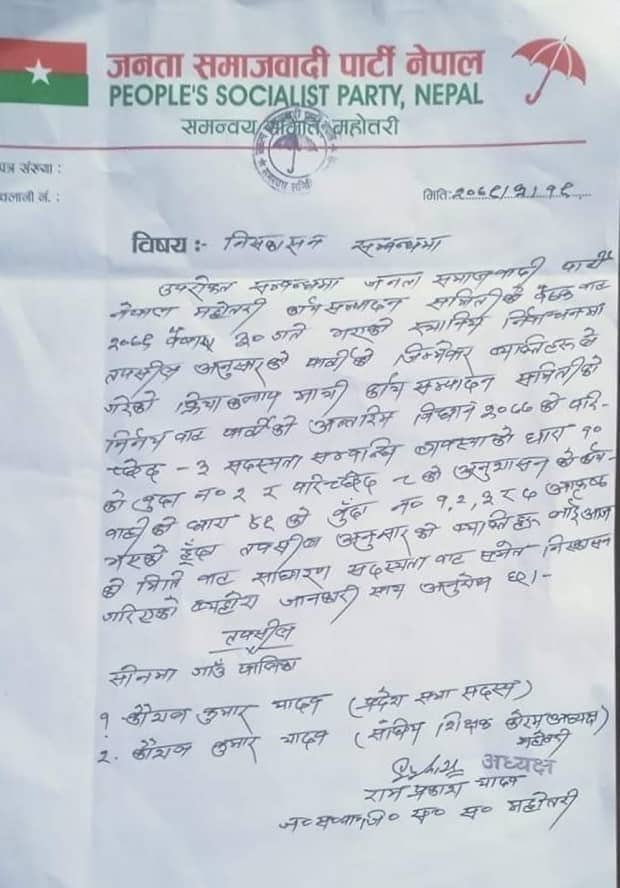 जनता समाजवादी पार्टी नेपाल
PEOPLE'S SOCIALIST PARTY, NEPAL
समन्वय समिति महोत्तरी
पत्र संख्या :
चलानी नं. :
मिति:२०७९/१/१९
विषय :- निस्काशन सम्बन्धमा
उपरोक्त सम्बन्धमा जनता समाजवादी पार्टी
नेपाल महोत्तरी कार्य सम्पादन समितिको बैठक बाट
२०७९ बैशाख गते भएको स्थानिय निर्वाचनमा
तपसील अनुसारको पार्टीको जिम्मेवार व्यक्तिहरुले
गरेको क्रिया कलाप माथी कार्य सम्पादन समितीको
निर्णय बाट पार्टीको अन्तरिम विधान २०७७ को परि-
च्छेद - ३ सदस्यता सम्बन्धि व्यवस्थाको धारा १०
को बुदा न० २ र परिच्छेद ८ को अनुशासन को कार्य-
वाही को धारा ४९ को बुँदा न० १,२,३ र ५ आकृष्ट
भएको हुँदा तपसील अनुसार को व्यक्तिहरु लाई आज
को मिति बाट साधारण सदस्यता बाट समेत निस्काशन
गरिएको व्यहोरा जानकारी साथ अनुरोध छ।-
तपसील
सोनमा गाउँ पालिका
१ कुमार यादव (प्रदेश सभा सदस्य)
२. कुमार यादव (संघिय शिक्षक अध्यक्ष)
महोत्तरी
अध्यक्ष
राम प्रकाश यादव
स० महोत्तरी